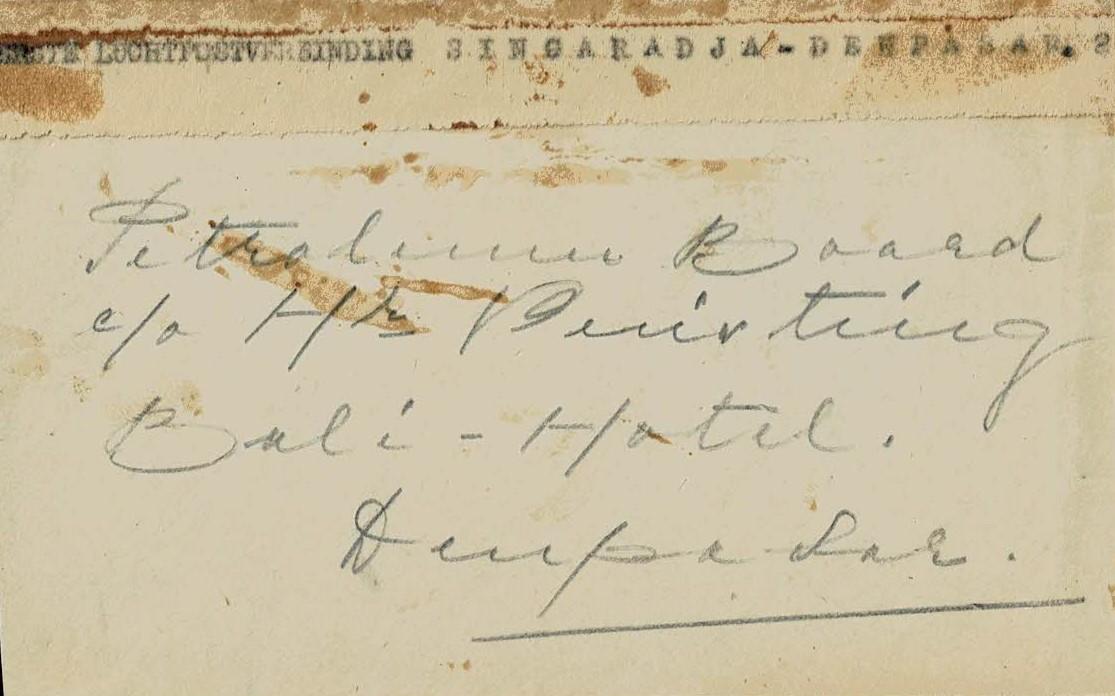 EERSTE LUCHTPOSTVERBINDING SINGARADJA-DENPASAR.
Petroleum Board
c/o Hr
Bali - Hotel.
Denpasar.